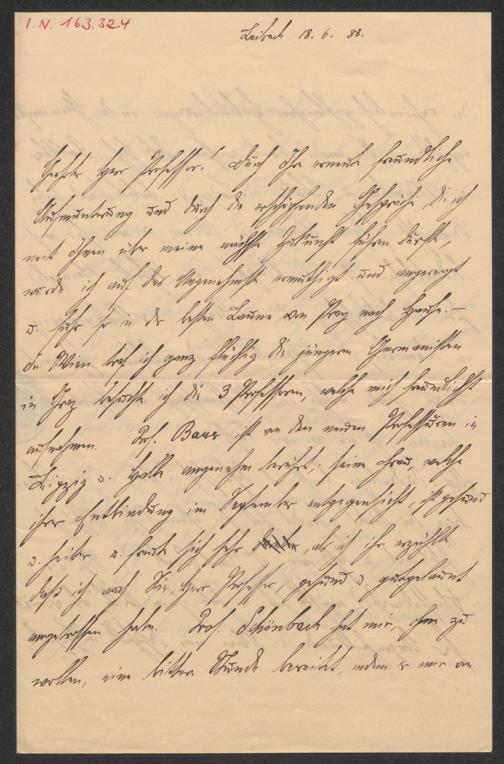 I. N. 163.324
Laibach 18. 6. 88.
Geehrter Herr Professor! Durch Ihre erneute freundliche
Aufmunterung und durch die erschöpfenden Gespräche, die ich
mit Ihnen über meine nächste Zukunft führen durfte,
wurde ich auf das Angenehmste ermuthigt und angeregt
u. fuhr so in der besten Laune von Prag nach Hause. —
In Wien traf ich ganz flüchtig die jüngeren Germanisten
in Graz besuchte ich die 3 Professoren, welche mich freundlichst
aufnahmen. Prof. Bauer ist von den neuen Professuren in
Leipzig u. Halle angenehm berührt; seine Frau, welche
ihrer Entbindung im September entgegensieht, ist gesund
u. heiter u. freute sich sehr, als ich ihr erzählte
daß ich auch Sie, Herr Professor, gesund u. gutgelaunt
angetroffen habe. Prof. Schönbach hat mir, ohne zu
wollen, eine bittere Stunde bereitet, indem er mir von